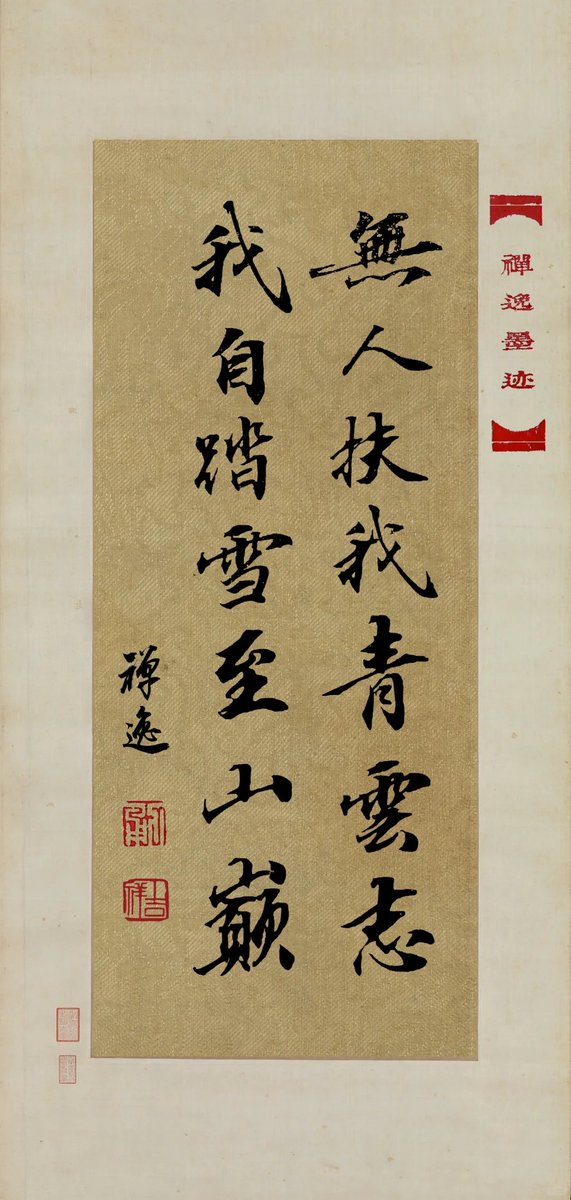 禪逸墨迹
無人扶我青雲志
我自踏雪至山巔
禅逸
吉祥